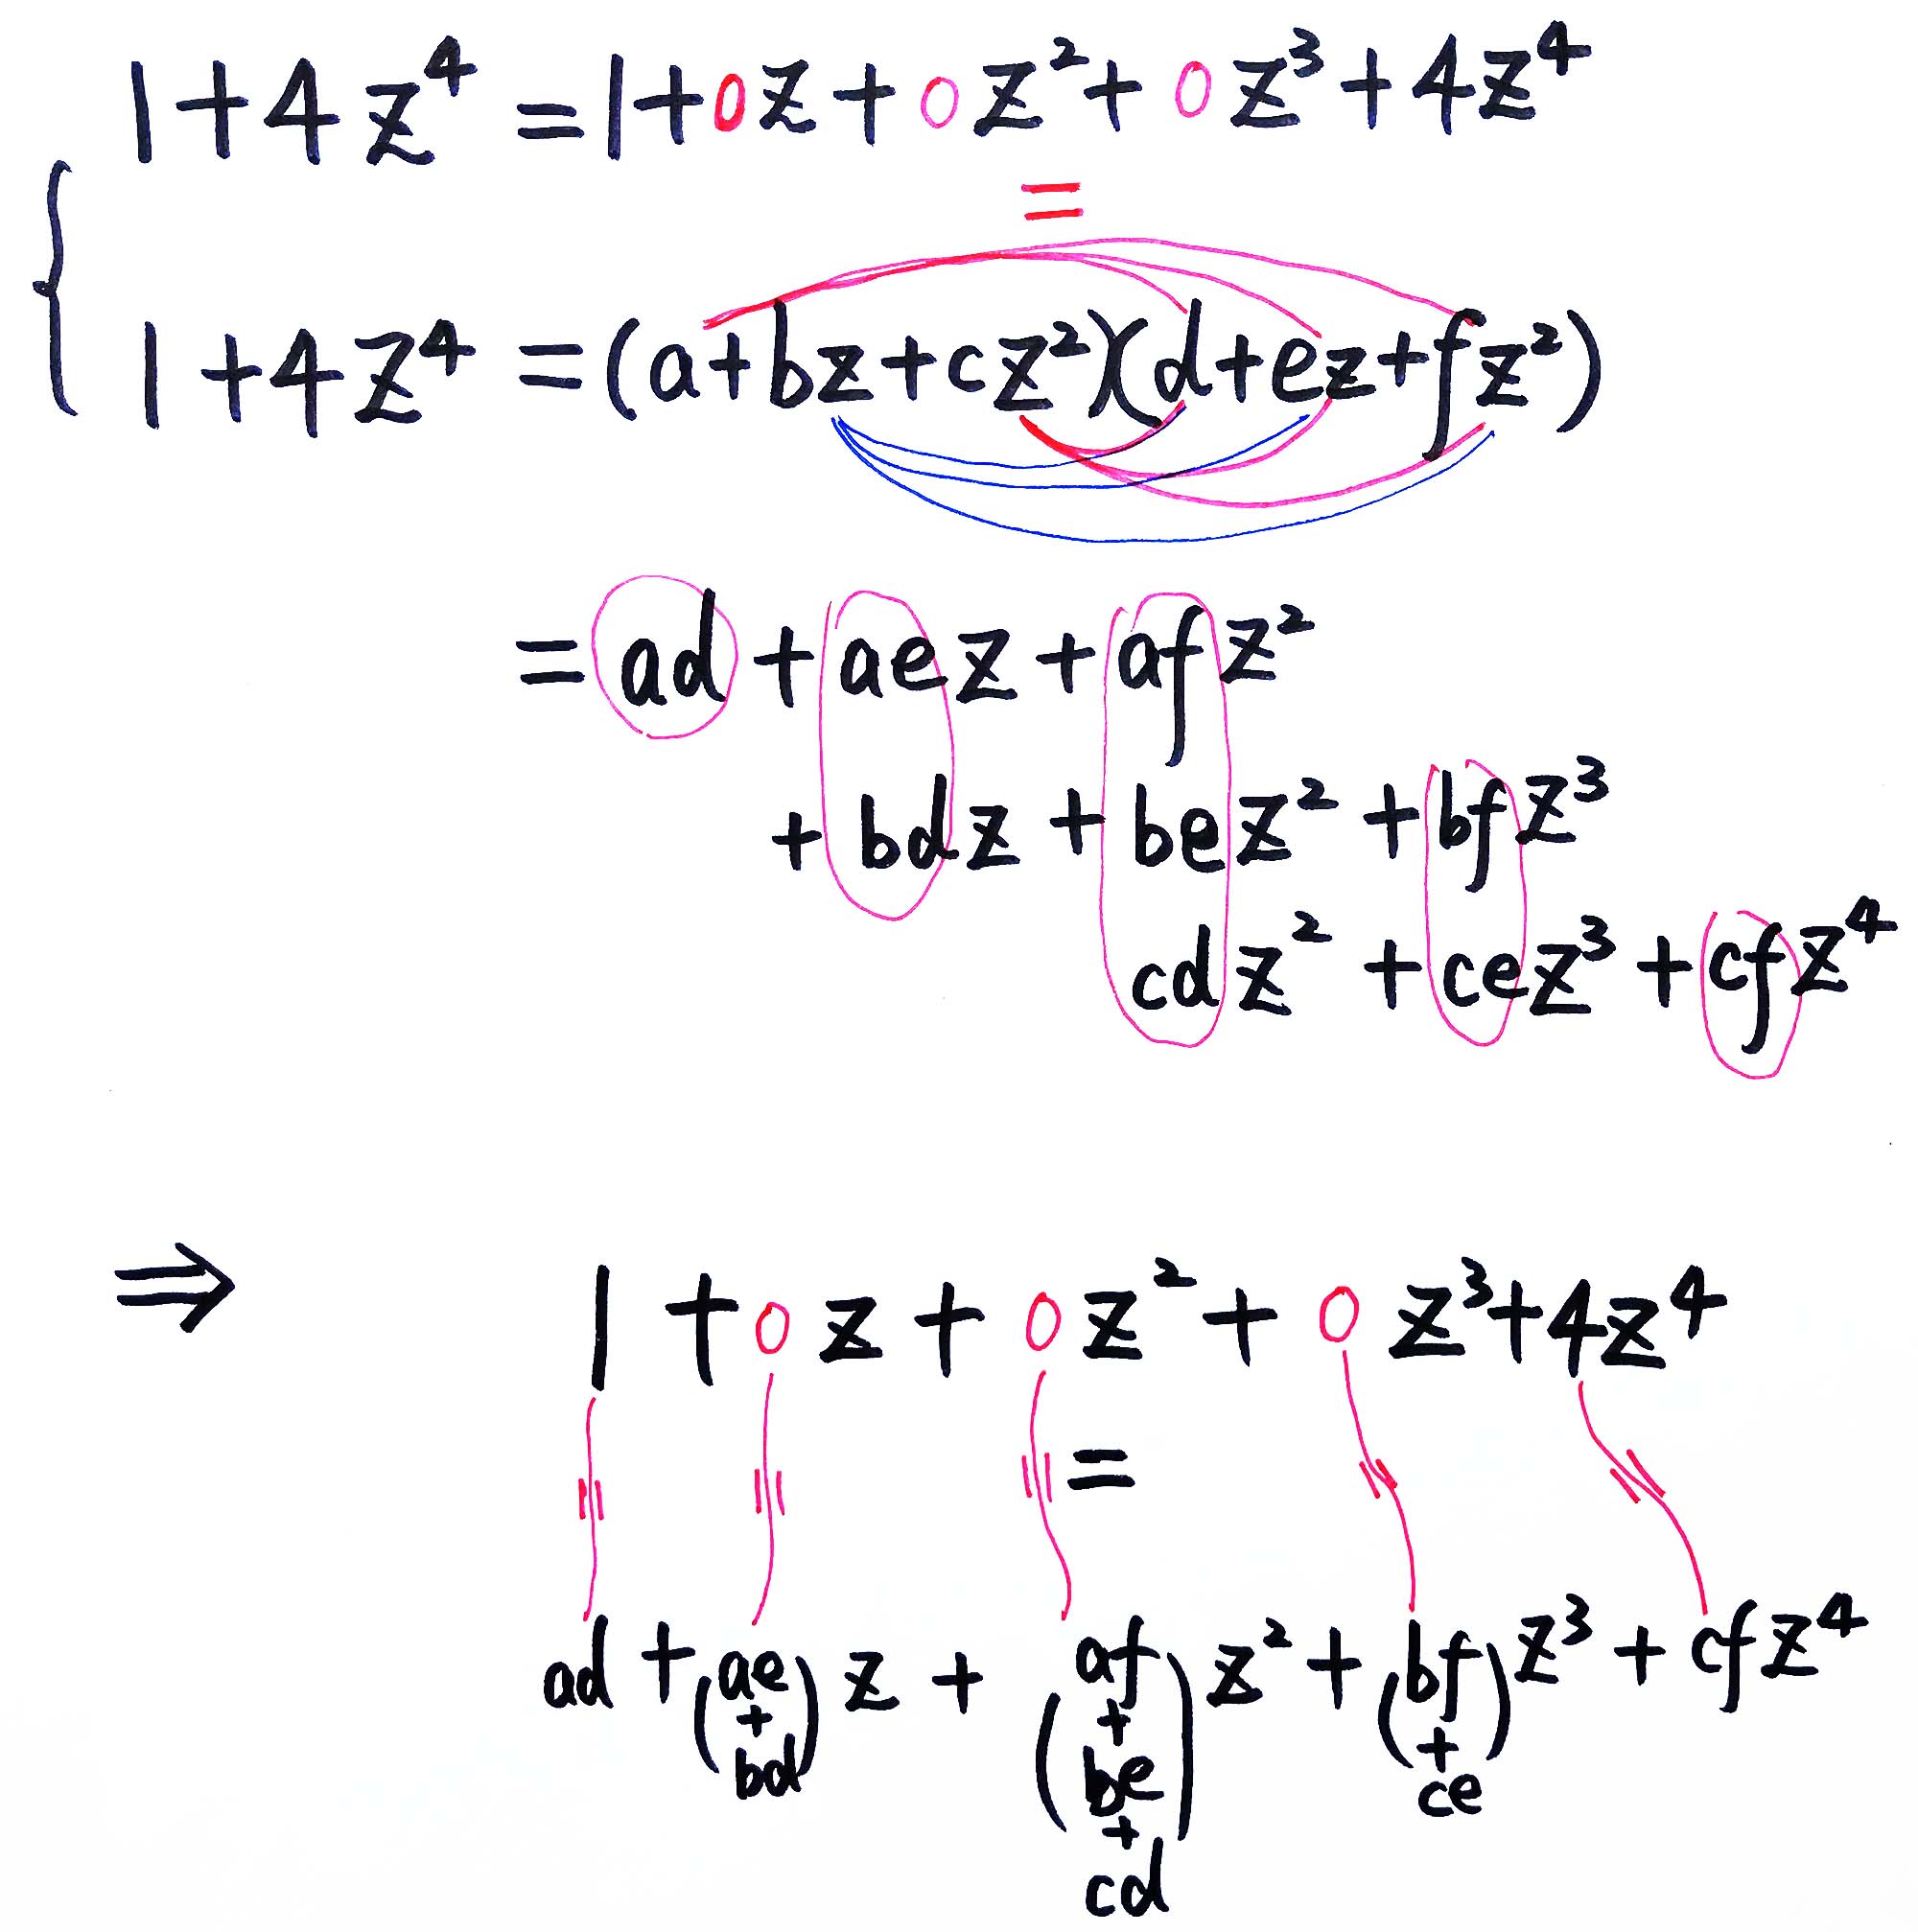 1+4z⁴ = 1+0z+0z²+0z³+4z⁴
=
1+4z⁴ = (a+bz+cz²)(d+ez+fz²)
= ad + aez + afz²
+ bdz + bez² + bfz³
cdz² + cez³ + cfz⁴
⇒ 1 + 0z + 0z² + 0z³ + 4z⁴
=
ad + (ae + bd) z + (af + be + cd) z² + (bf + ce) z³ + cfz⁴